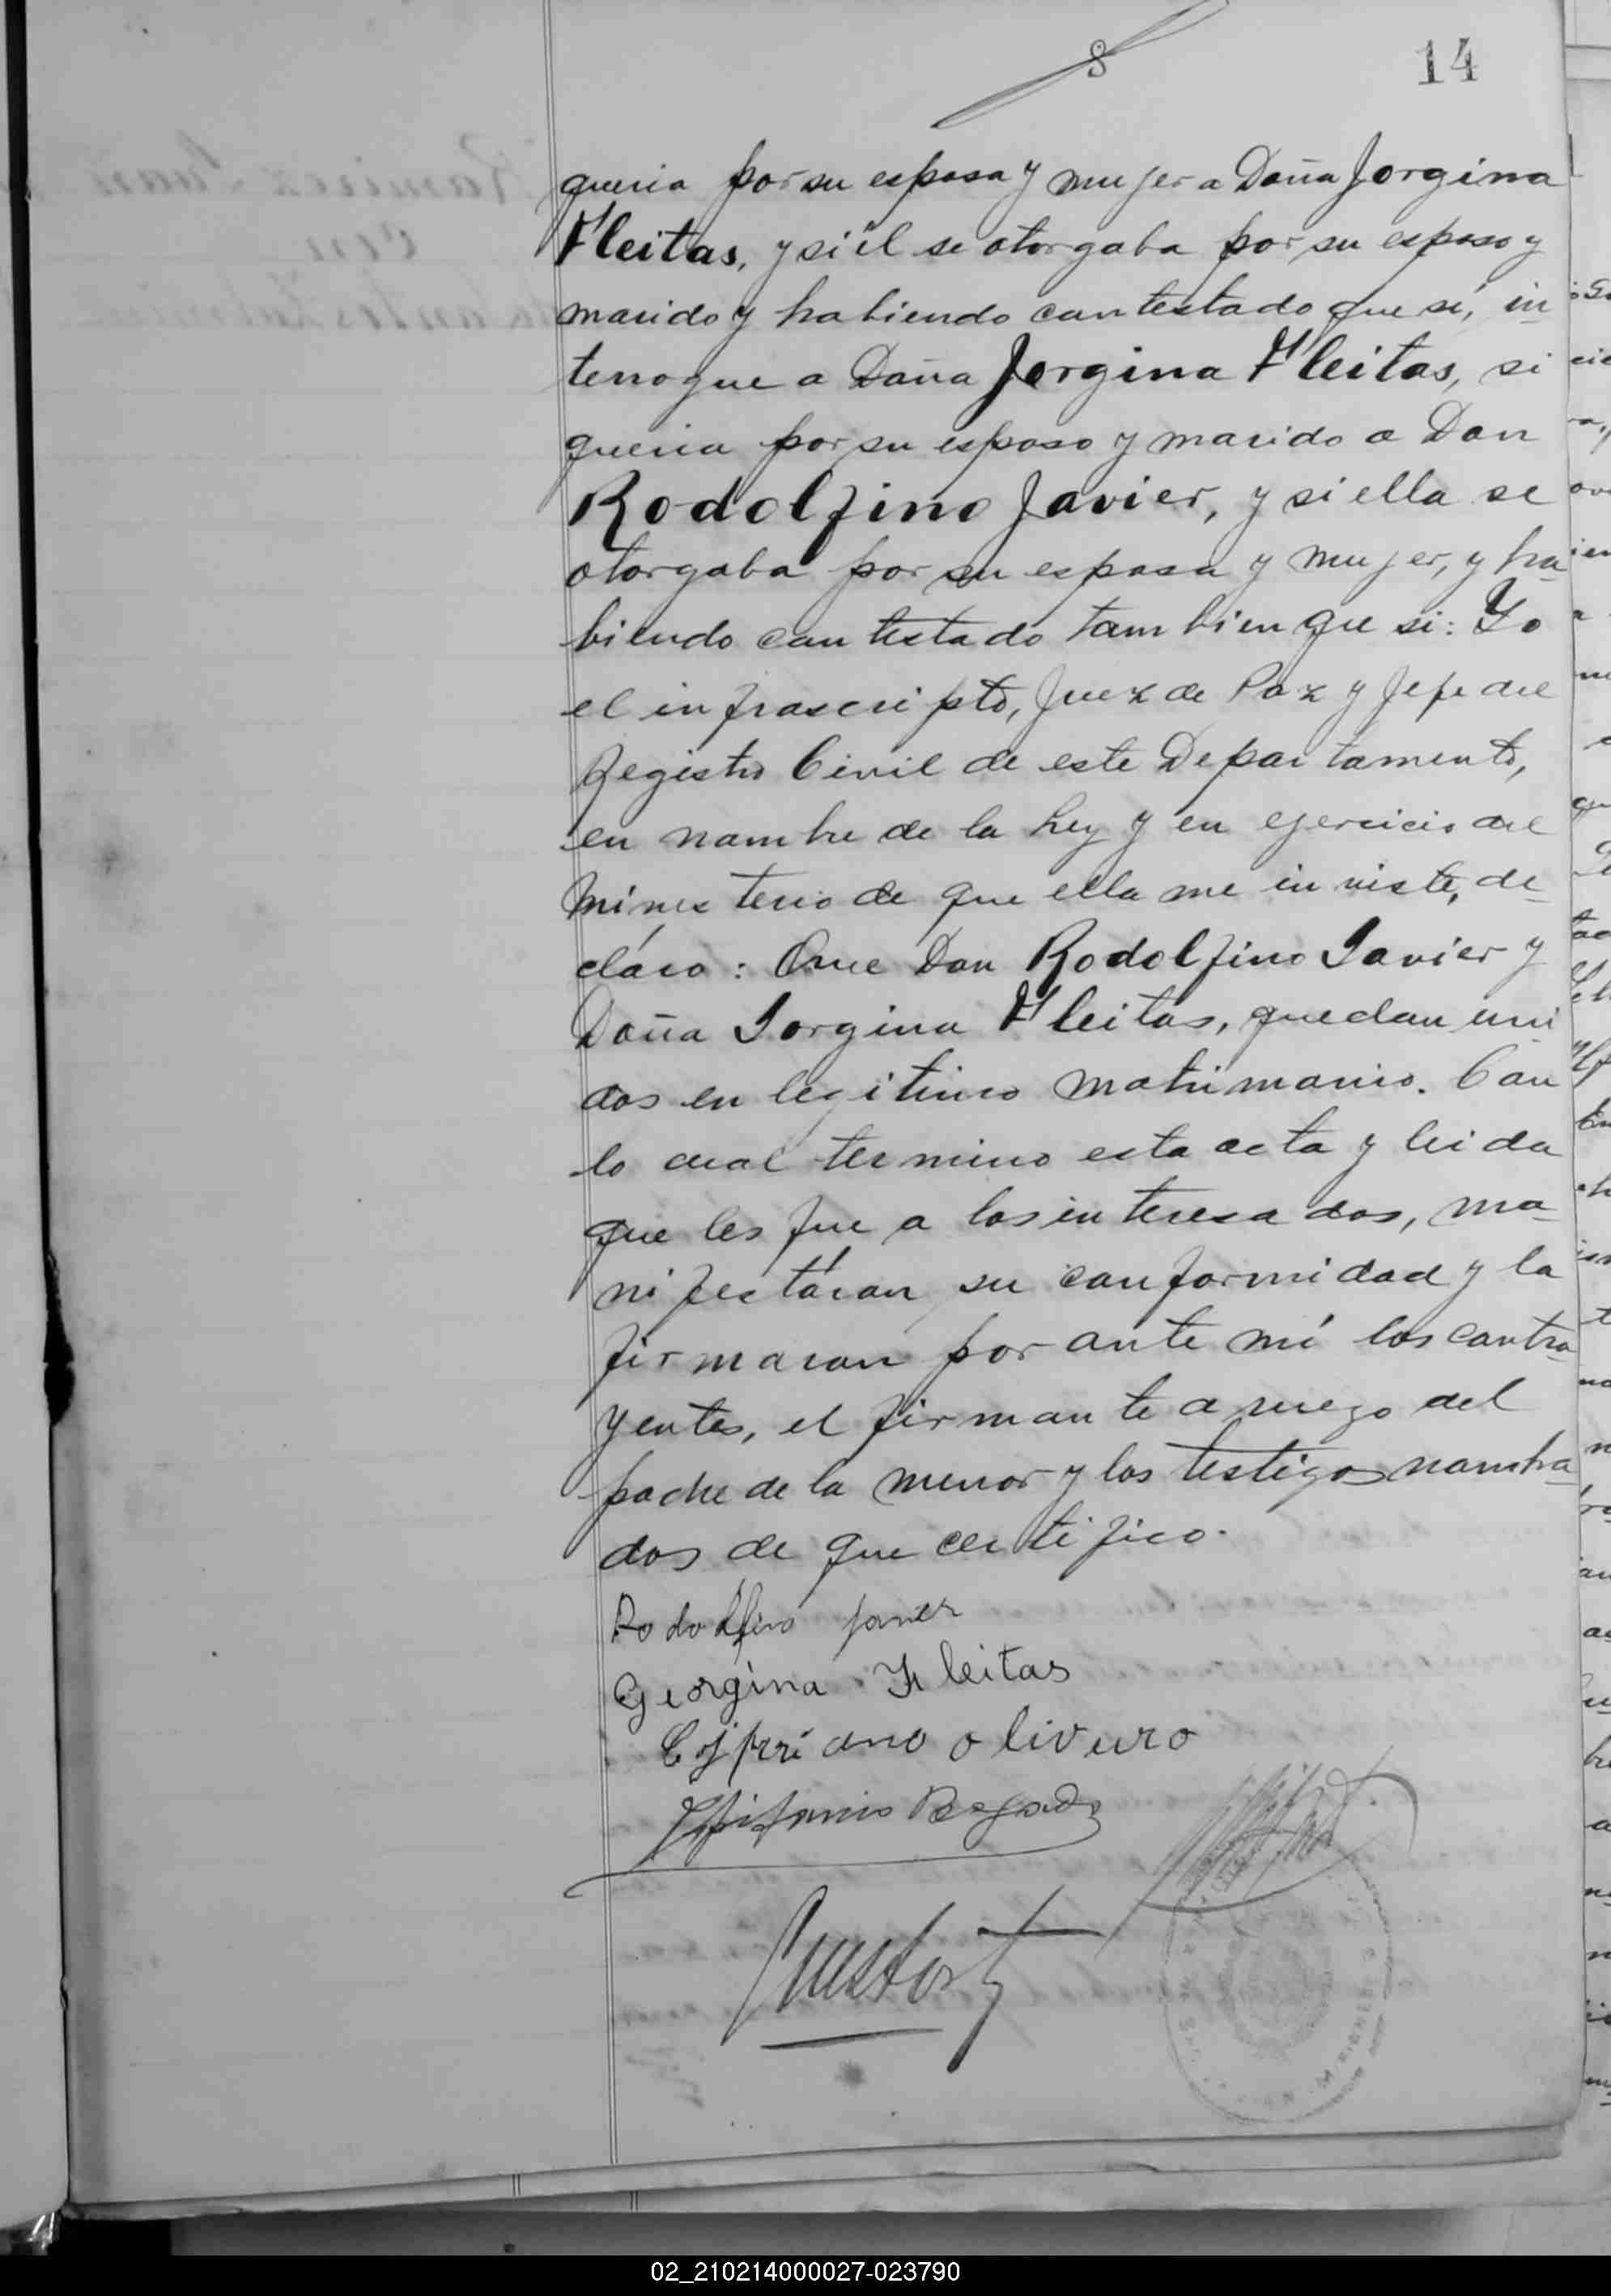 8
14
queria por su esposa y mujer a Doña Jorgina
Fleitas, y si él se otorgaba por su esposo y
marido y habiendo contestado que si, in-
terrogue a Doña Jorgina Fleitas, si
queria por su esposo y marido a Don
Rodolfino Javier, y si ella se
otorgaba por su esposa y mujer, y ha-
biendo contestado tambien que si: Yo
el infrascripto, Juez de Paz y Jefe del
Registro Civil de este Departamento,
en nombre de la Ley y en ejercicio del
ministerio de que ella me inviste, de-
cláro: Que Don Rodolfino Javier y
Doña Jorgina Fleitas, quedan uni
dos en legitimo matrimonio. Con
lo cual termino esta acta y leida
que les fue a los interesados, ma-
nifestáron su conformidad y la
firmaron por ante mi los contra-
yentes, el firmante a ruego del
padre de la menor y los testigos nombra-
dos de que certifico.
Rodolfino Javier
Georgina Fleitas
Cipriano olivero
Epifanio Bogado
02_210214000027-023790